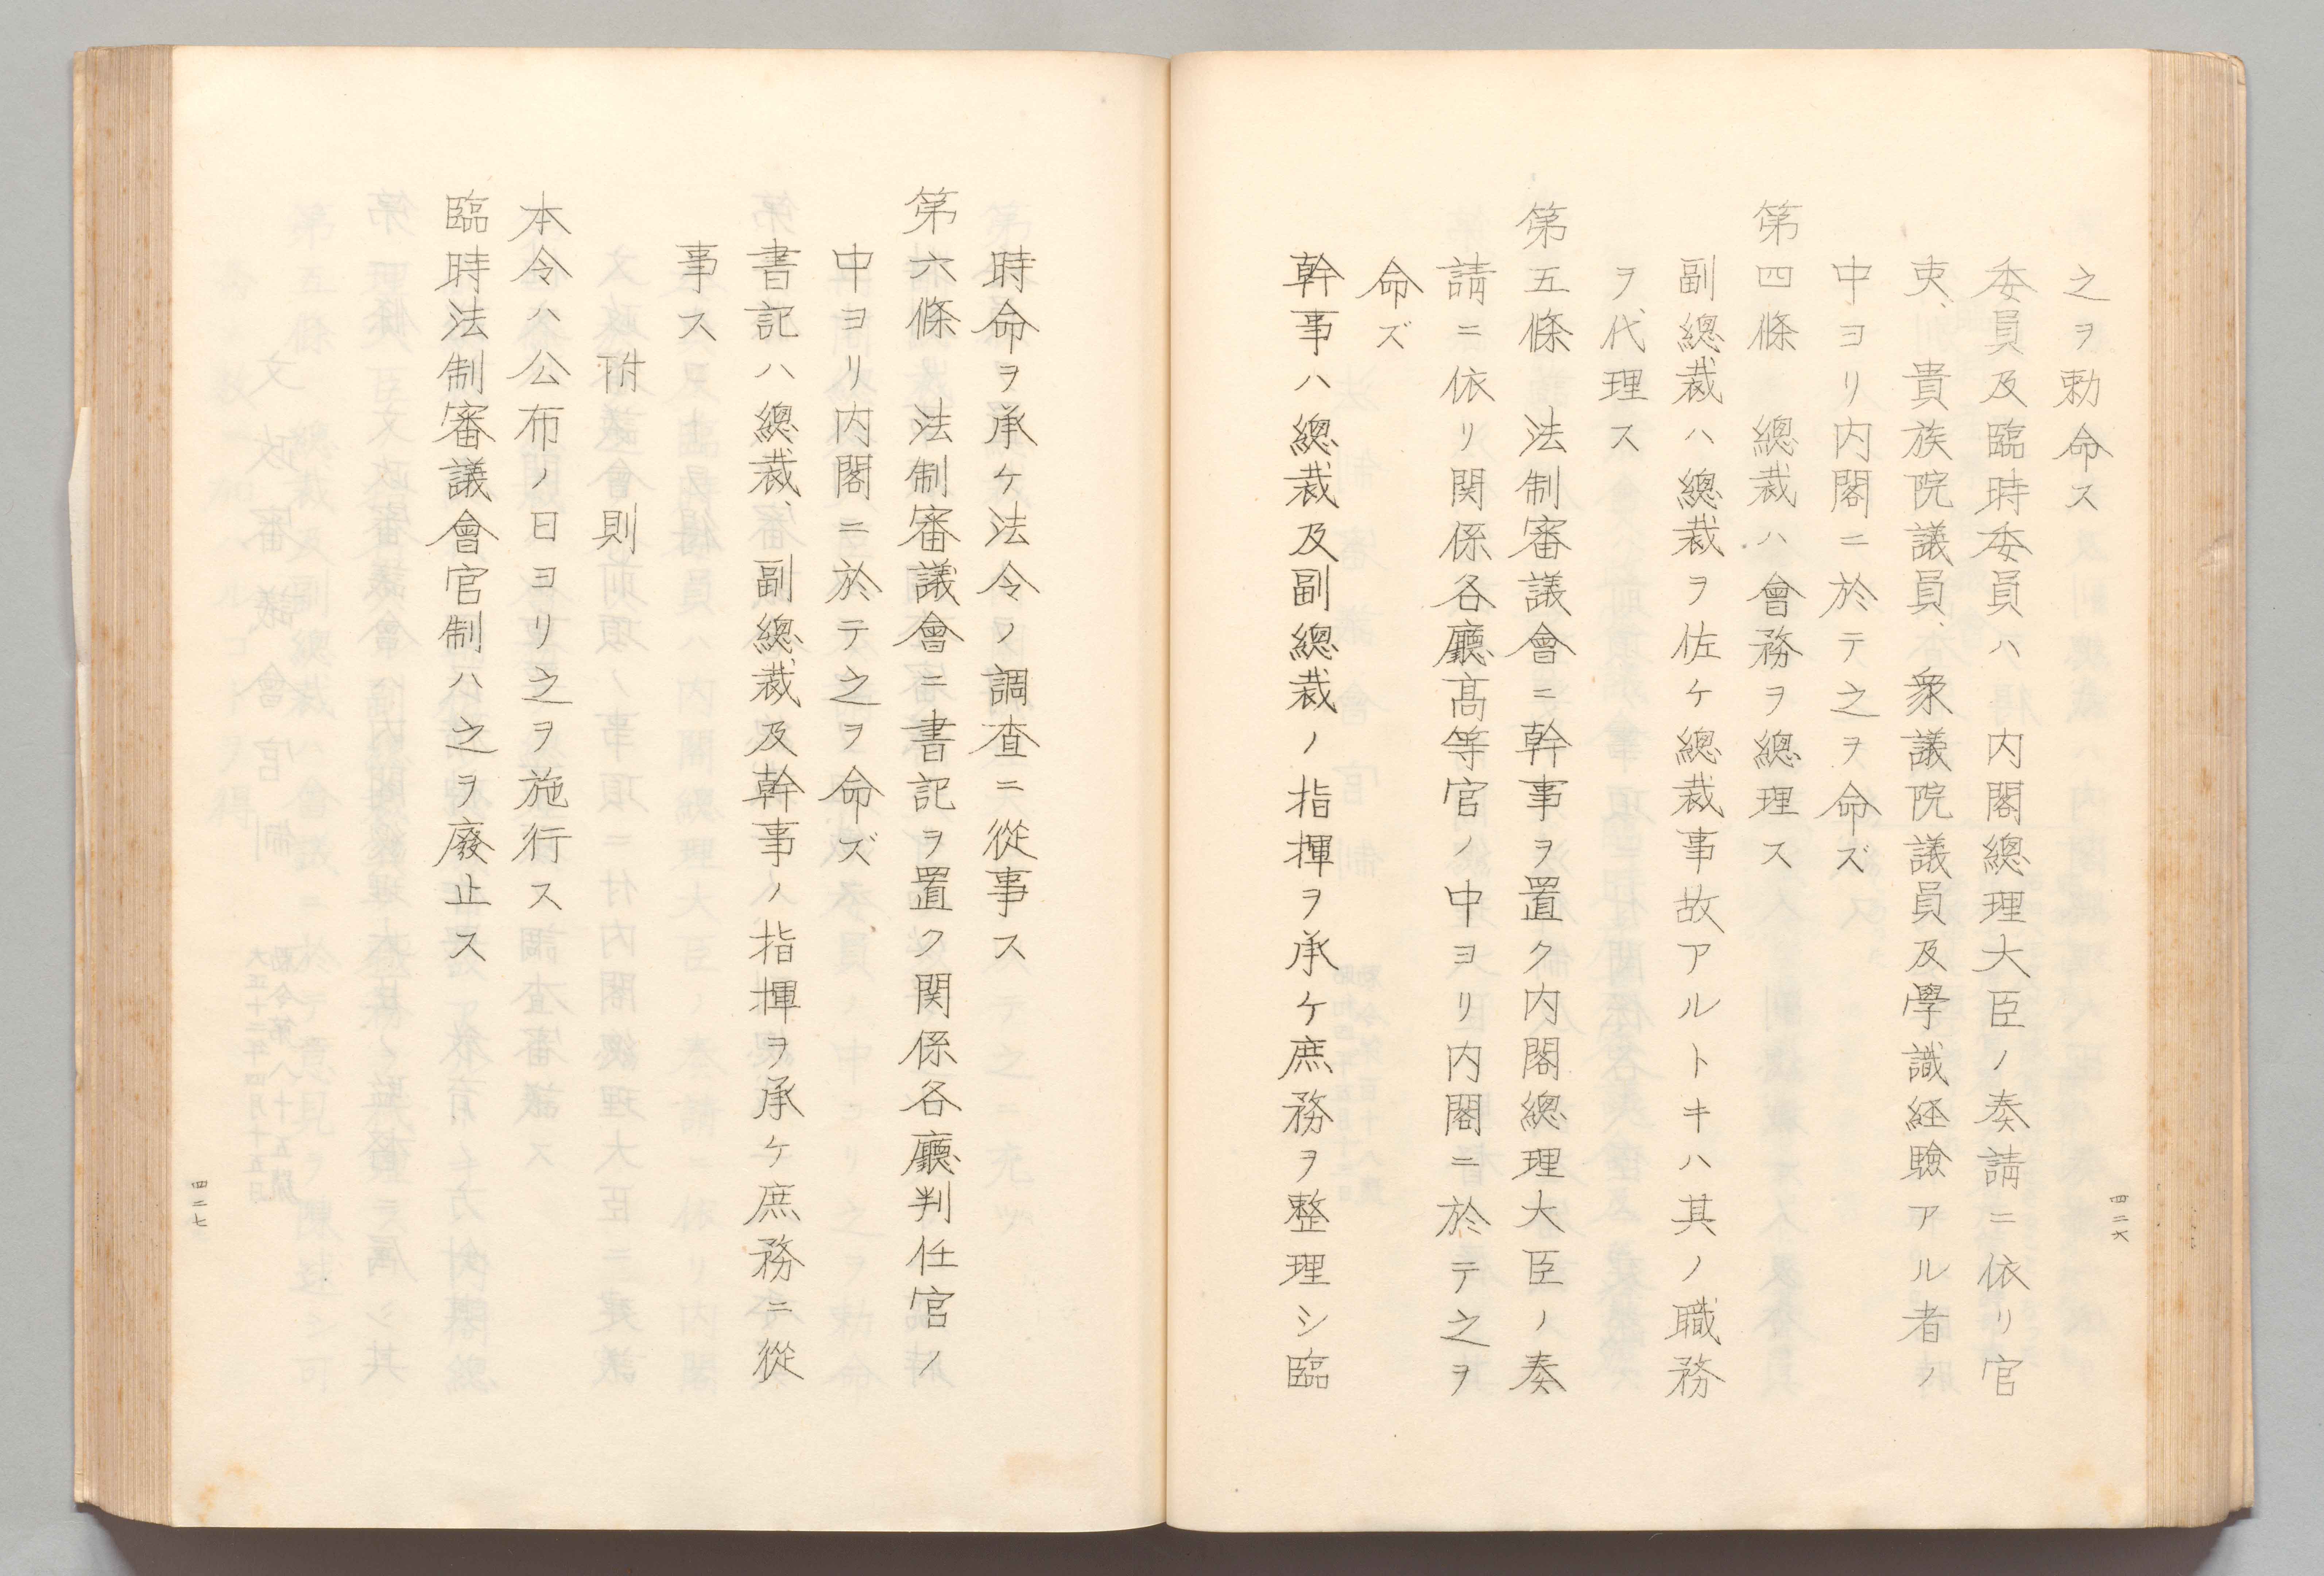 之ヲ勅命ス
委員及臨時委員ハ内閣總理大臣ノ奏請ニ依リ官
吏、貴族院議員、衆議院議員及學識経驗アル者ノ
中ヨリ内閣ニ於テ之ヲ命ズ
第四條　總裁ハ會務ヲ總理ス
副總裁ハ總裁ヲ佐ケ總裁事故アルトキハ其ノ職務
ヲ代理ス
第五條　法制審議會ニ幹事ヲ置ク内閣總理大臣ノ奏
請ニ依リ関係各廳髙等官ノ中ヨリ内閣ニ於テ之ヲ
命ズ
幹事ハ總裁及副總裁ノ指揮ヲ承ケ庶務ヲ整理シ臨
四二六
時命ヲ承ケ法令ノ調査ニ從事ス
第六條　法制審議會ニ書記ヲ置ク関係各廳判任官ノ
中ヨリ内閣ニ於テ之ヲ命ズ
書記ハ總裁、副總裁及幹事ノ指揮ヲ承ケ庶務ニ從
事ス
附　則
本令ハ公布ノ日ヨリ之ヲ施行ス
臨時法制審議會官制ハ之ヲ廢止ス
四二七